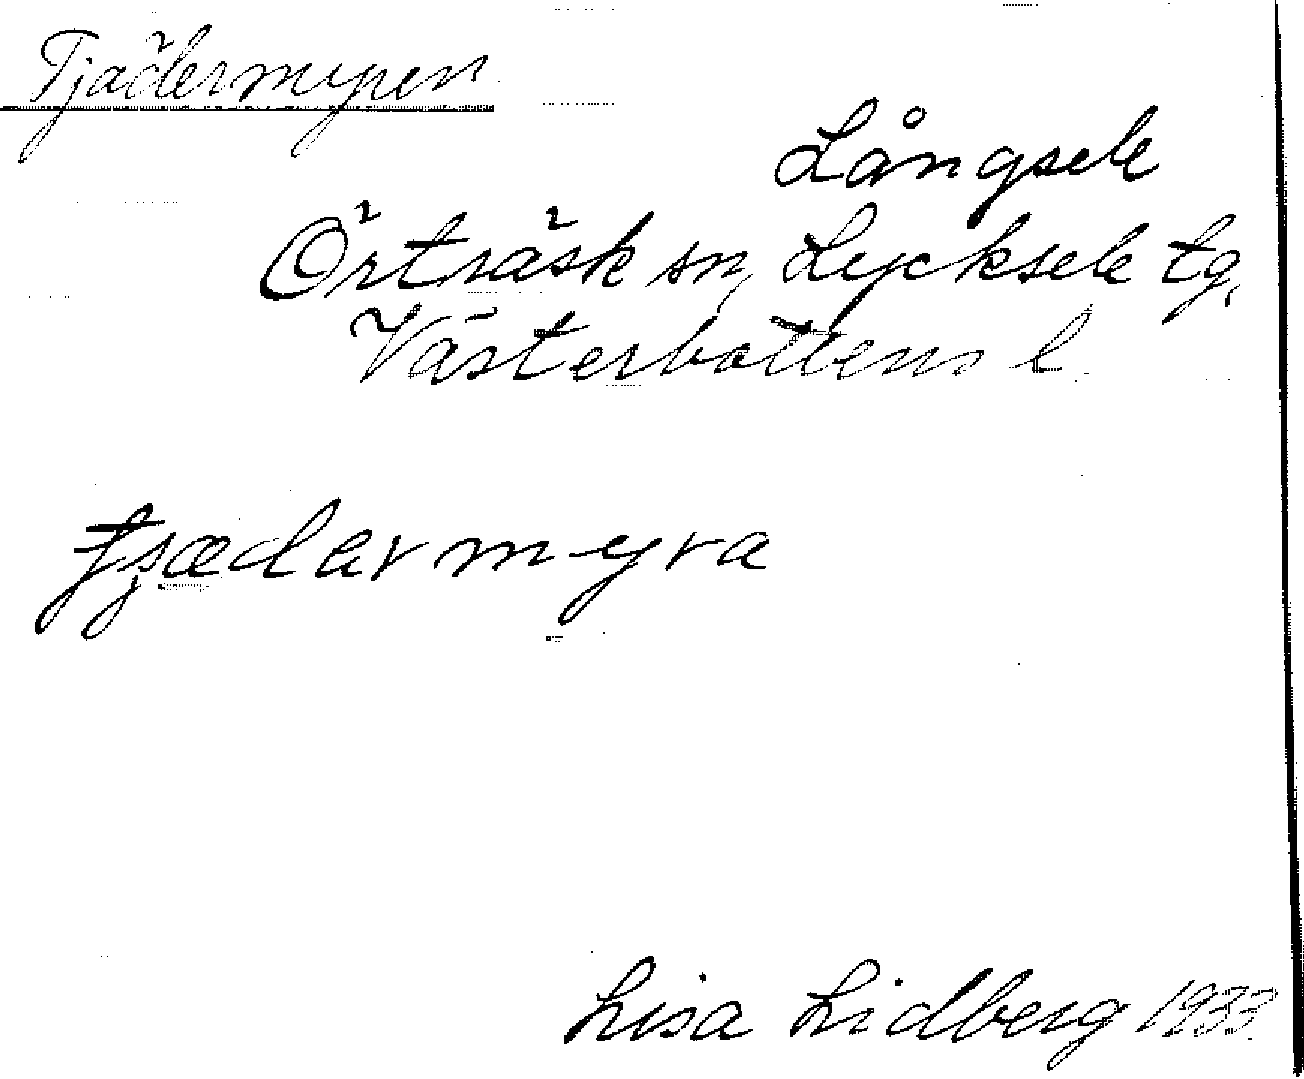 Tjädermyren
Långsele
Örträsk sn, Lycksele tg,
Västerbottens l.
tjædermyra
Lisa Lidberg 1933.